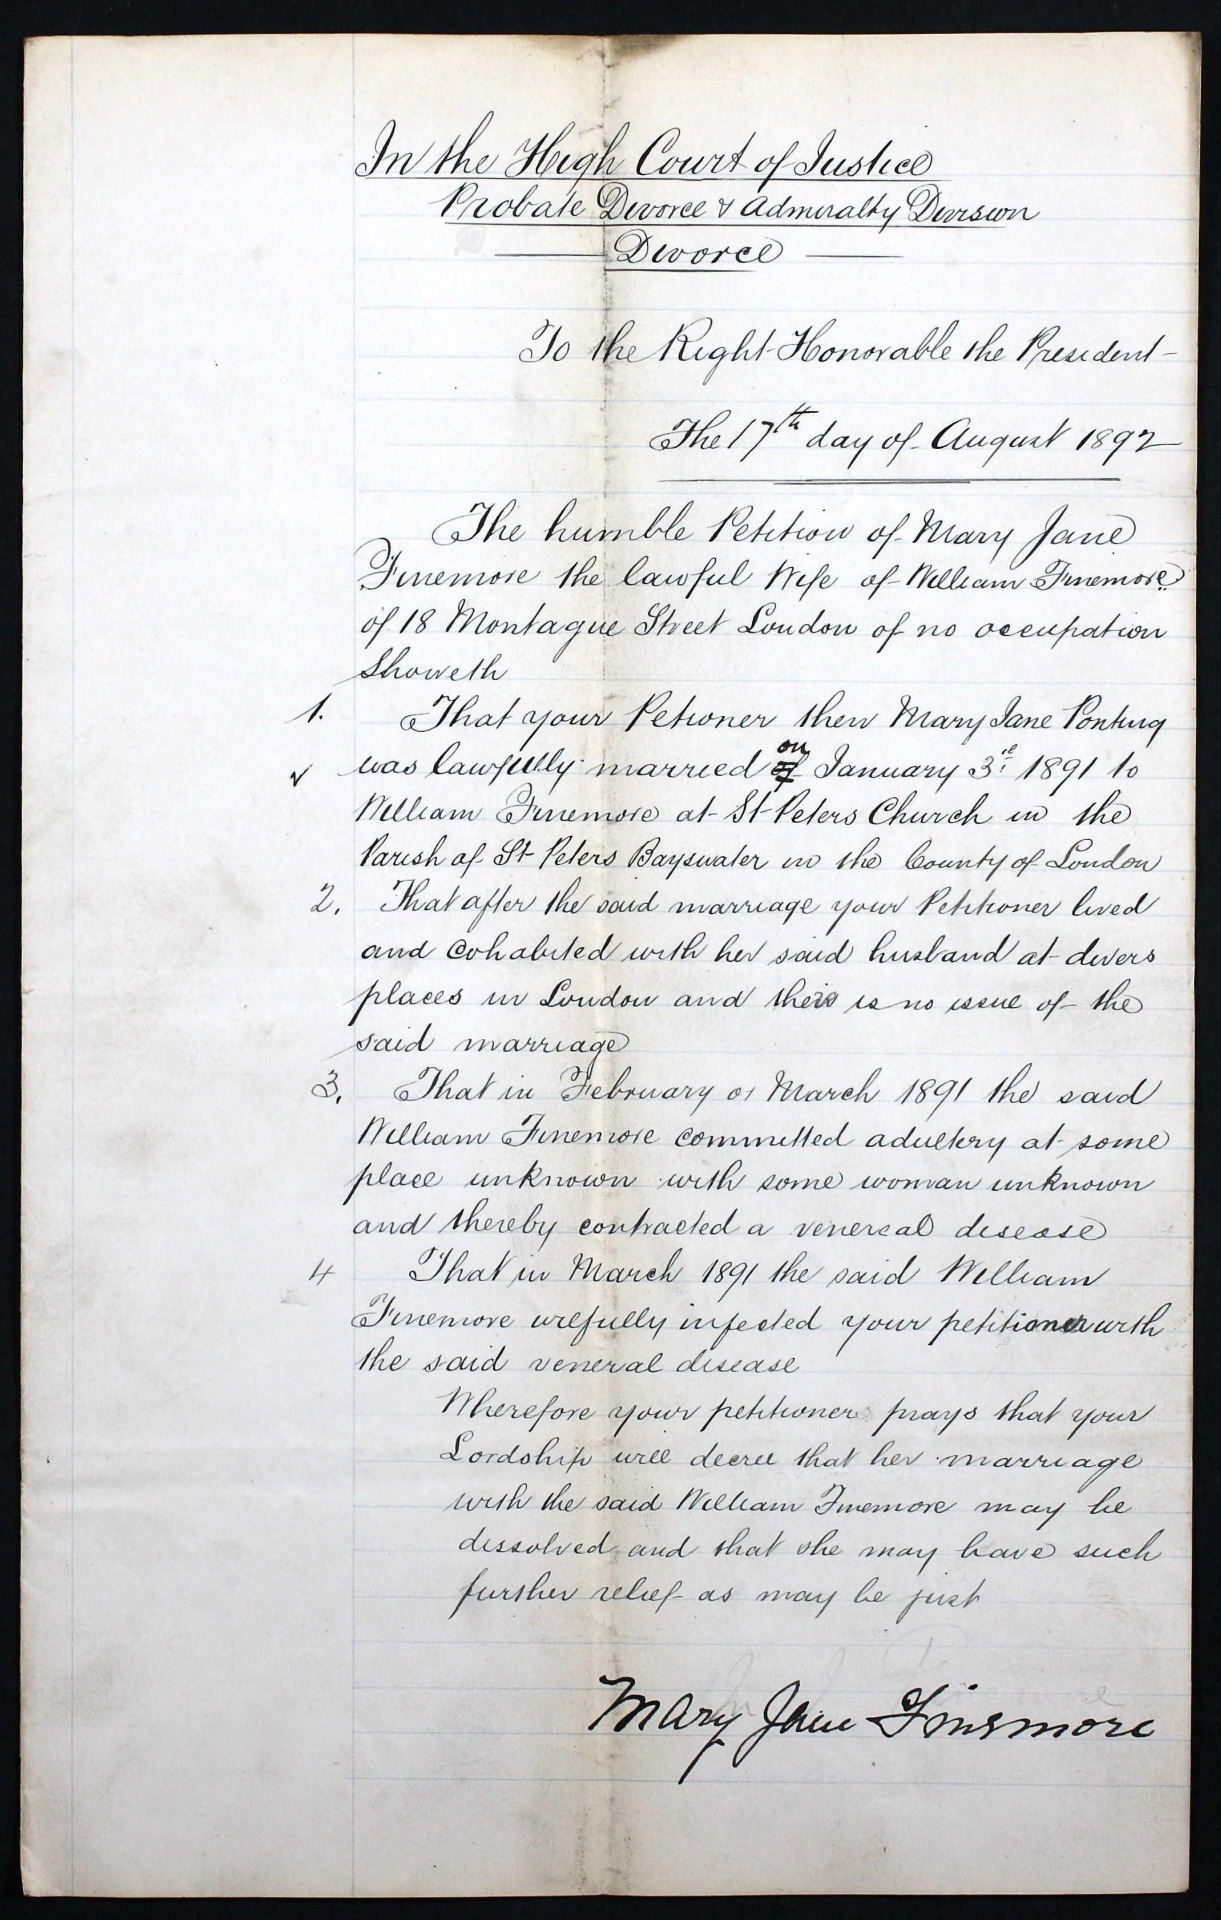 In the High Court of Justice
Probate Divorce & Admiralty Division
Divorce
To the Right Honorable the President
The 17th day of August 1892
The humble Petition of Mary Jane
Finemore the lawful Wife of William Finemore
of 18 Montague Street London of no occupation
Showeth
1. That your Petioner then Mary Jane Ponting
was lawfully married on January 3rd 1891 to
William Finemore at St Peters Church in the
Parish of St Peters Bayswater in the County of London
2. That after the said marriage your Petitioner lived
and cohabited with her said husband at divers
places in London and their is no issue of the
said marriage
3. That in February or March 1891 the said
William Finemore committed adultery at some
place unknown with some woman unknown
and thereby contracted a venereal disease
4 That in March 1891 the said William
Finemore wilfully infected your petitioner with
the said veneral disease
Wherefore your petitioner prays that your
Lordship will decree that her marriage
with the said William Finemore may be
dissolved and that she may have such
further relief as may be just
Mary Jane Finemore